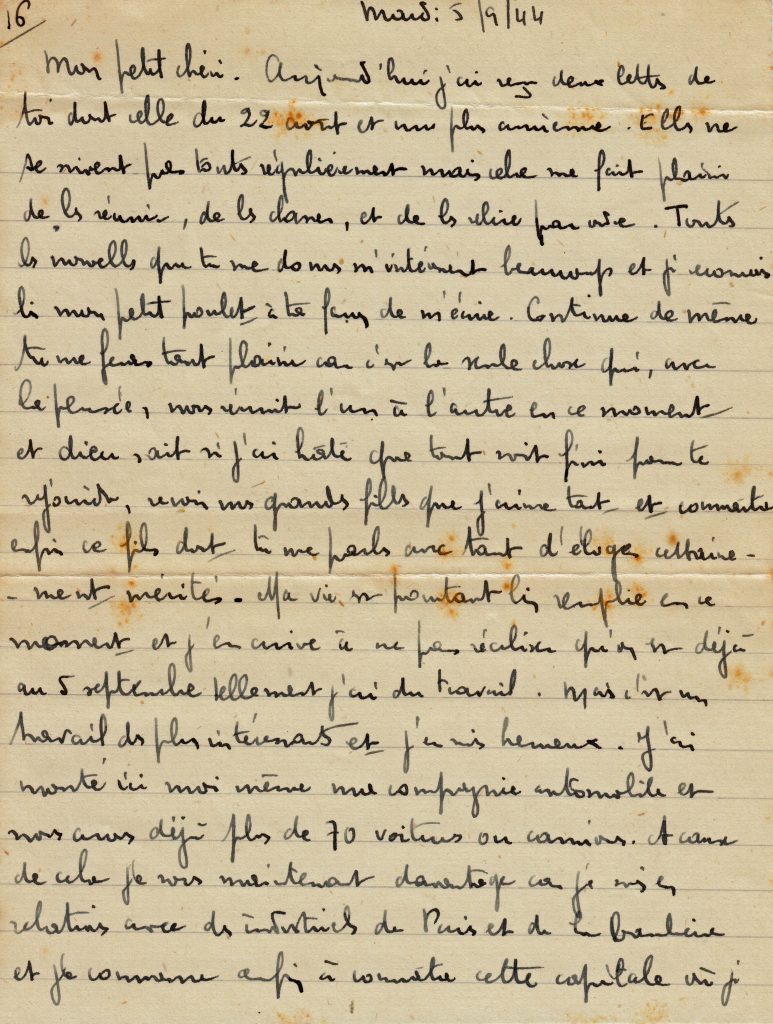 16
Mardi 5/9/44
Mon petit chéri. Aujourd'hui j'ai reçu deux lettres de
toi dont celle du 22 août et une plus ancienne. Elles ne
se suivent pas toutes régulièrement mais cela me fait plaisir
de les réunir, de les classer, et de les relire par ordre. Toutes
les nouvelles que tu me donnes m'intéressent beaucoup et je reconnais
là mon petit poulet à ta façon de m'écrire. Continue de même
tu me feras tant plaisir car c'est la seule chose qui, avec
la pensée, nous réunit l'un à l'autre en ce moment
et dieu sait si j'ai hâte que tout soit fini pour te
rejoindre, revoir mes grandes filles que j'aime tant et connaître
enfin ce fils dont tu me parles avec tant d'éloges certaine-
-ment mérités. Ma vie est pourtant bien remplie en ce
moment et j'en arrive à ne pas réaliser qu'on est déjà
au 5 septembre tellement j'ai du travail. Mais c'est un
travail des plus intéressants et j'en suis heureux. J'ai
monté ici moi même une compagnie automobile et
nous avons déjà plus de 70 voitures ou camions. A cause
de cela je sors maintenant davantage car je suis en
relations avec des industriels de Paris et de la banlieue
et je commence enfin à connaître cette capitale où je